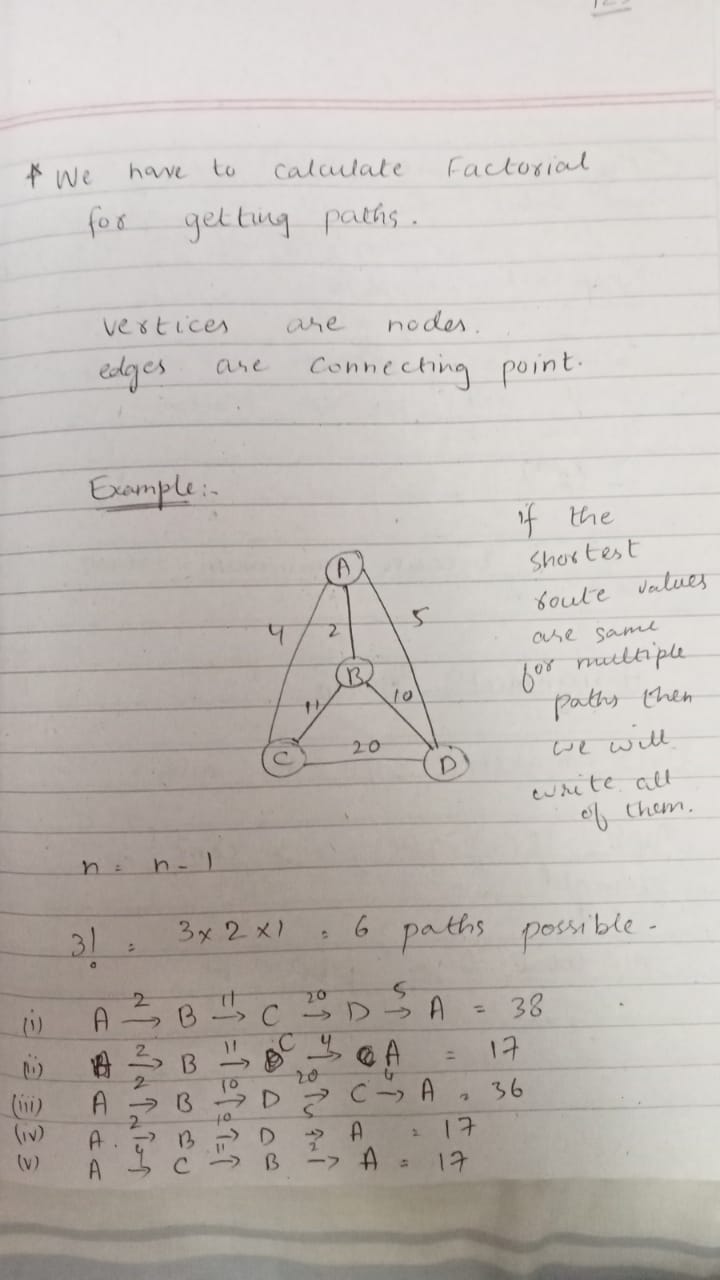 * We have to calculate Factorial
for getting paths.
vertices are nodes.
edges are connecting point.
Example:-
A
4 2 5
B
11 10
C 20 D
if the
shortest
route values
are same
for multiple
paths then
we will
write all
of them.
n = n-1
3! = 3x2x1 = 6 paths possible.
(i) A 2→ B 11→ C 20→ D 5→ A = 38
(ii) A 2→ B 11→ C 4→ A = 17
(iii) A 2→ B 10→ D 20→ C 4→ A = 36
(iv) A 2→ B 10→ D 5→ A = 17
(v) A 4→ C 11→ B 2→ A = 17